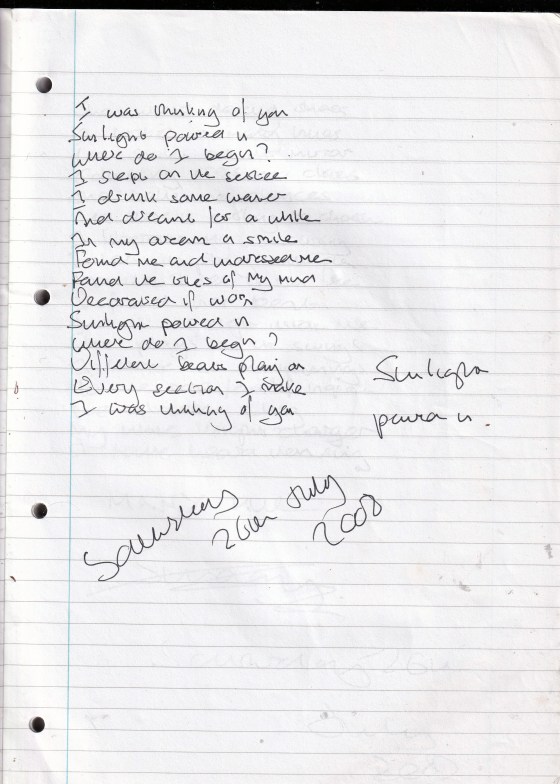 I was thinking of you
Sunlight poured in
Where do I begin?
I slept on the settee
I drunk some water
And dreamt for a while
In my dream a smile
Found me and
Found the of my mind
Decorated it
Sunlight poured in
Where do I begin?
Different beats play on
Every section I
I was thinking of you
Sunlight
poured in.
26th July
2008